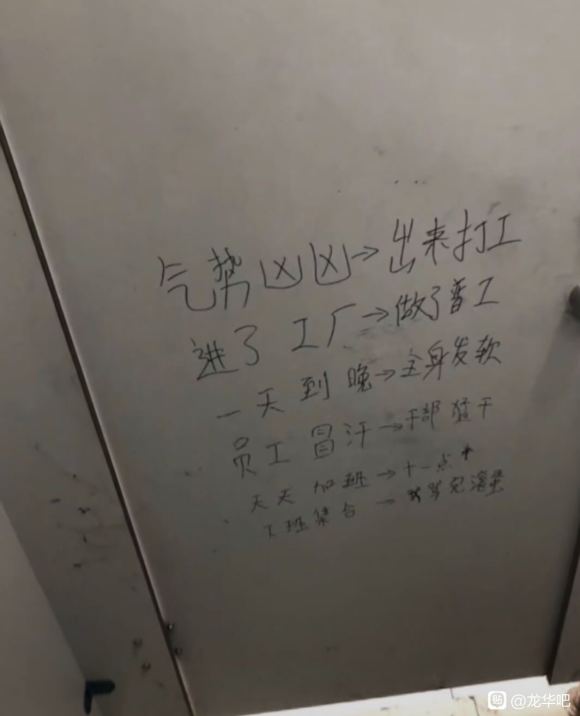 气势凶凶→出来打工
进了工厂→做了普工
一天到晚→全身发软
员工冒汗→干部猛干
天天加班→十一点
下班集合→
@龙华吧